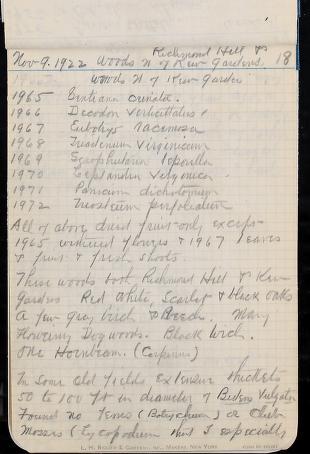 Richmond Hill &
Nov. 9. 1922 Woods N of Kew Gardens. 18
Woods N. of Kew Garden
1965 Gentiana crinita.
1966 Decodon verticillatus
1967 Eubotrys racemosa
1968 Triadenum virginicum
1969 Scrophularia
1970 Leptandra virginica
1971 Panicum dichotomum
1972 Triosteum perfoliatum
All of above dried fruit only except
1965 withered flowers & 1967 leaves
& fruit & fresh shoots.
These woods both Richmond Hill & Kew
Gardens Red, White, Scarlet & black oaks
A few gray birch & Beech. Many
Flowering Dogwoods. Black birch.
One Hornbeam. (Carpinus)
In some old fields extensive thickets
50 to 100 ft in diameter of Bidens vulgata
Found no Ferns (Botrychium) or Club
Mosses (Lycopodium) that I especially